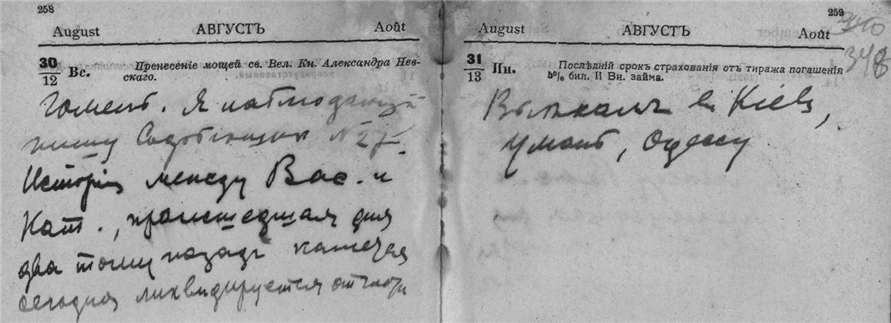 258
August АВГУСТЪ Août
30/12 Вс. Пренесеніе мощей св. Вел. Кн. Александра Нев-
скаго.
Гомель. Я наблюдающ
пишу Сообщающих N 27.
История между Вас. и
Кат., происшедшая дня
два тому назад
сегодня ликвидируется отчасти
259
August АВГУСТЪ Août
31/13 Пн. Послѣдній срокъ страхованія отъ тиража погашенія
5% бил. II Вн. займа.
348
Выѣхалъ в Кіевъ,
Умань, Одессу